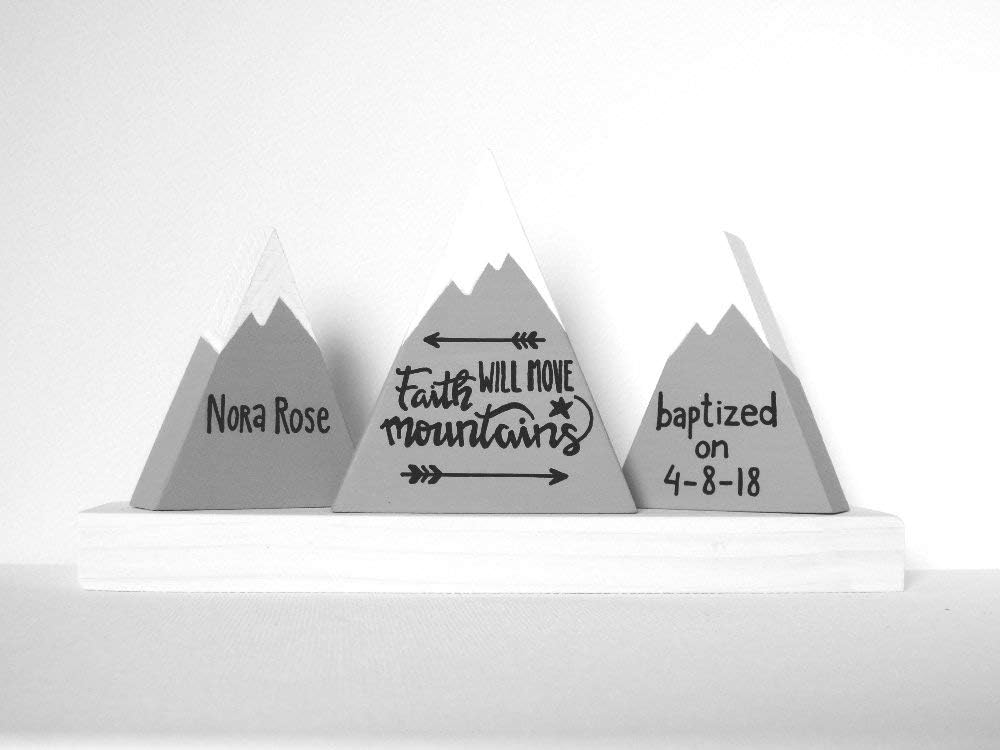 Nora Rose
Faith WILL MOVE
mountains
baptized
on
4-8-18